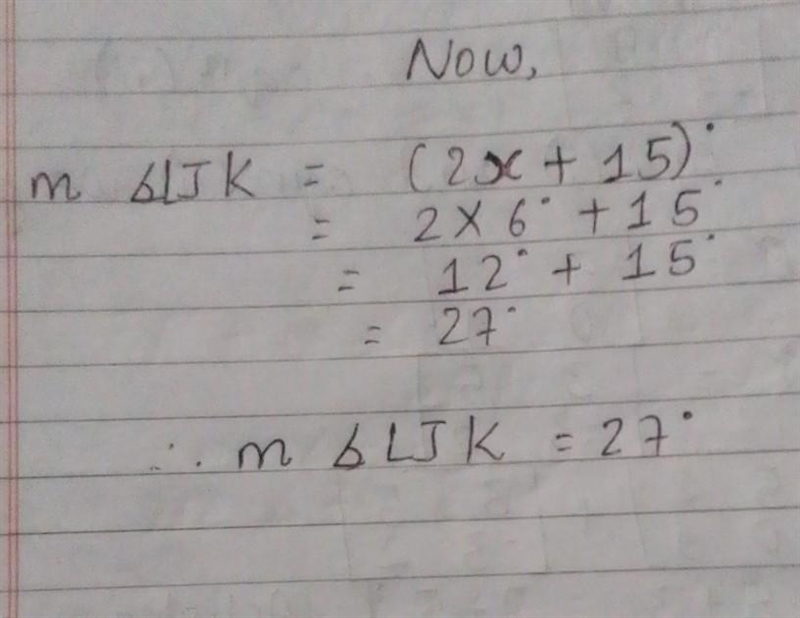 Now,
m ∡LJK = (2x + 15)°
= 2 × 6° + 15°
= 12° + 15°
= 27°
∴ m ∡LJK = 27°